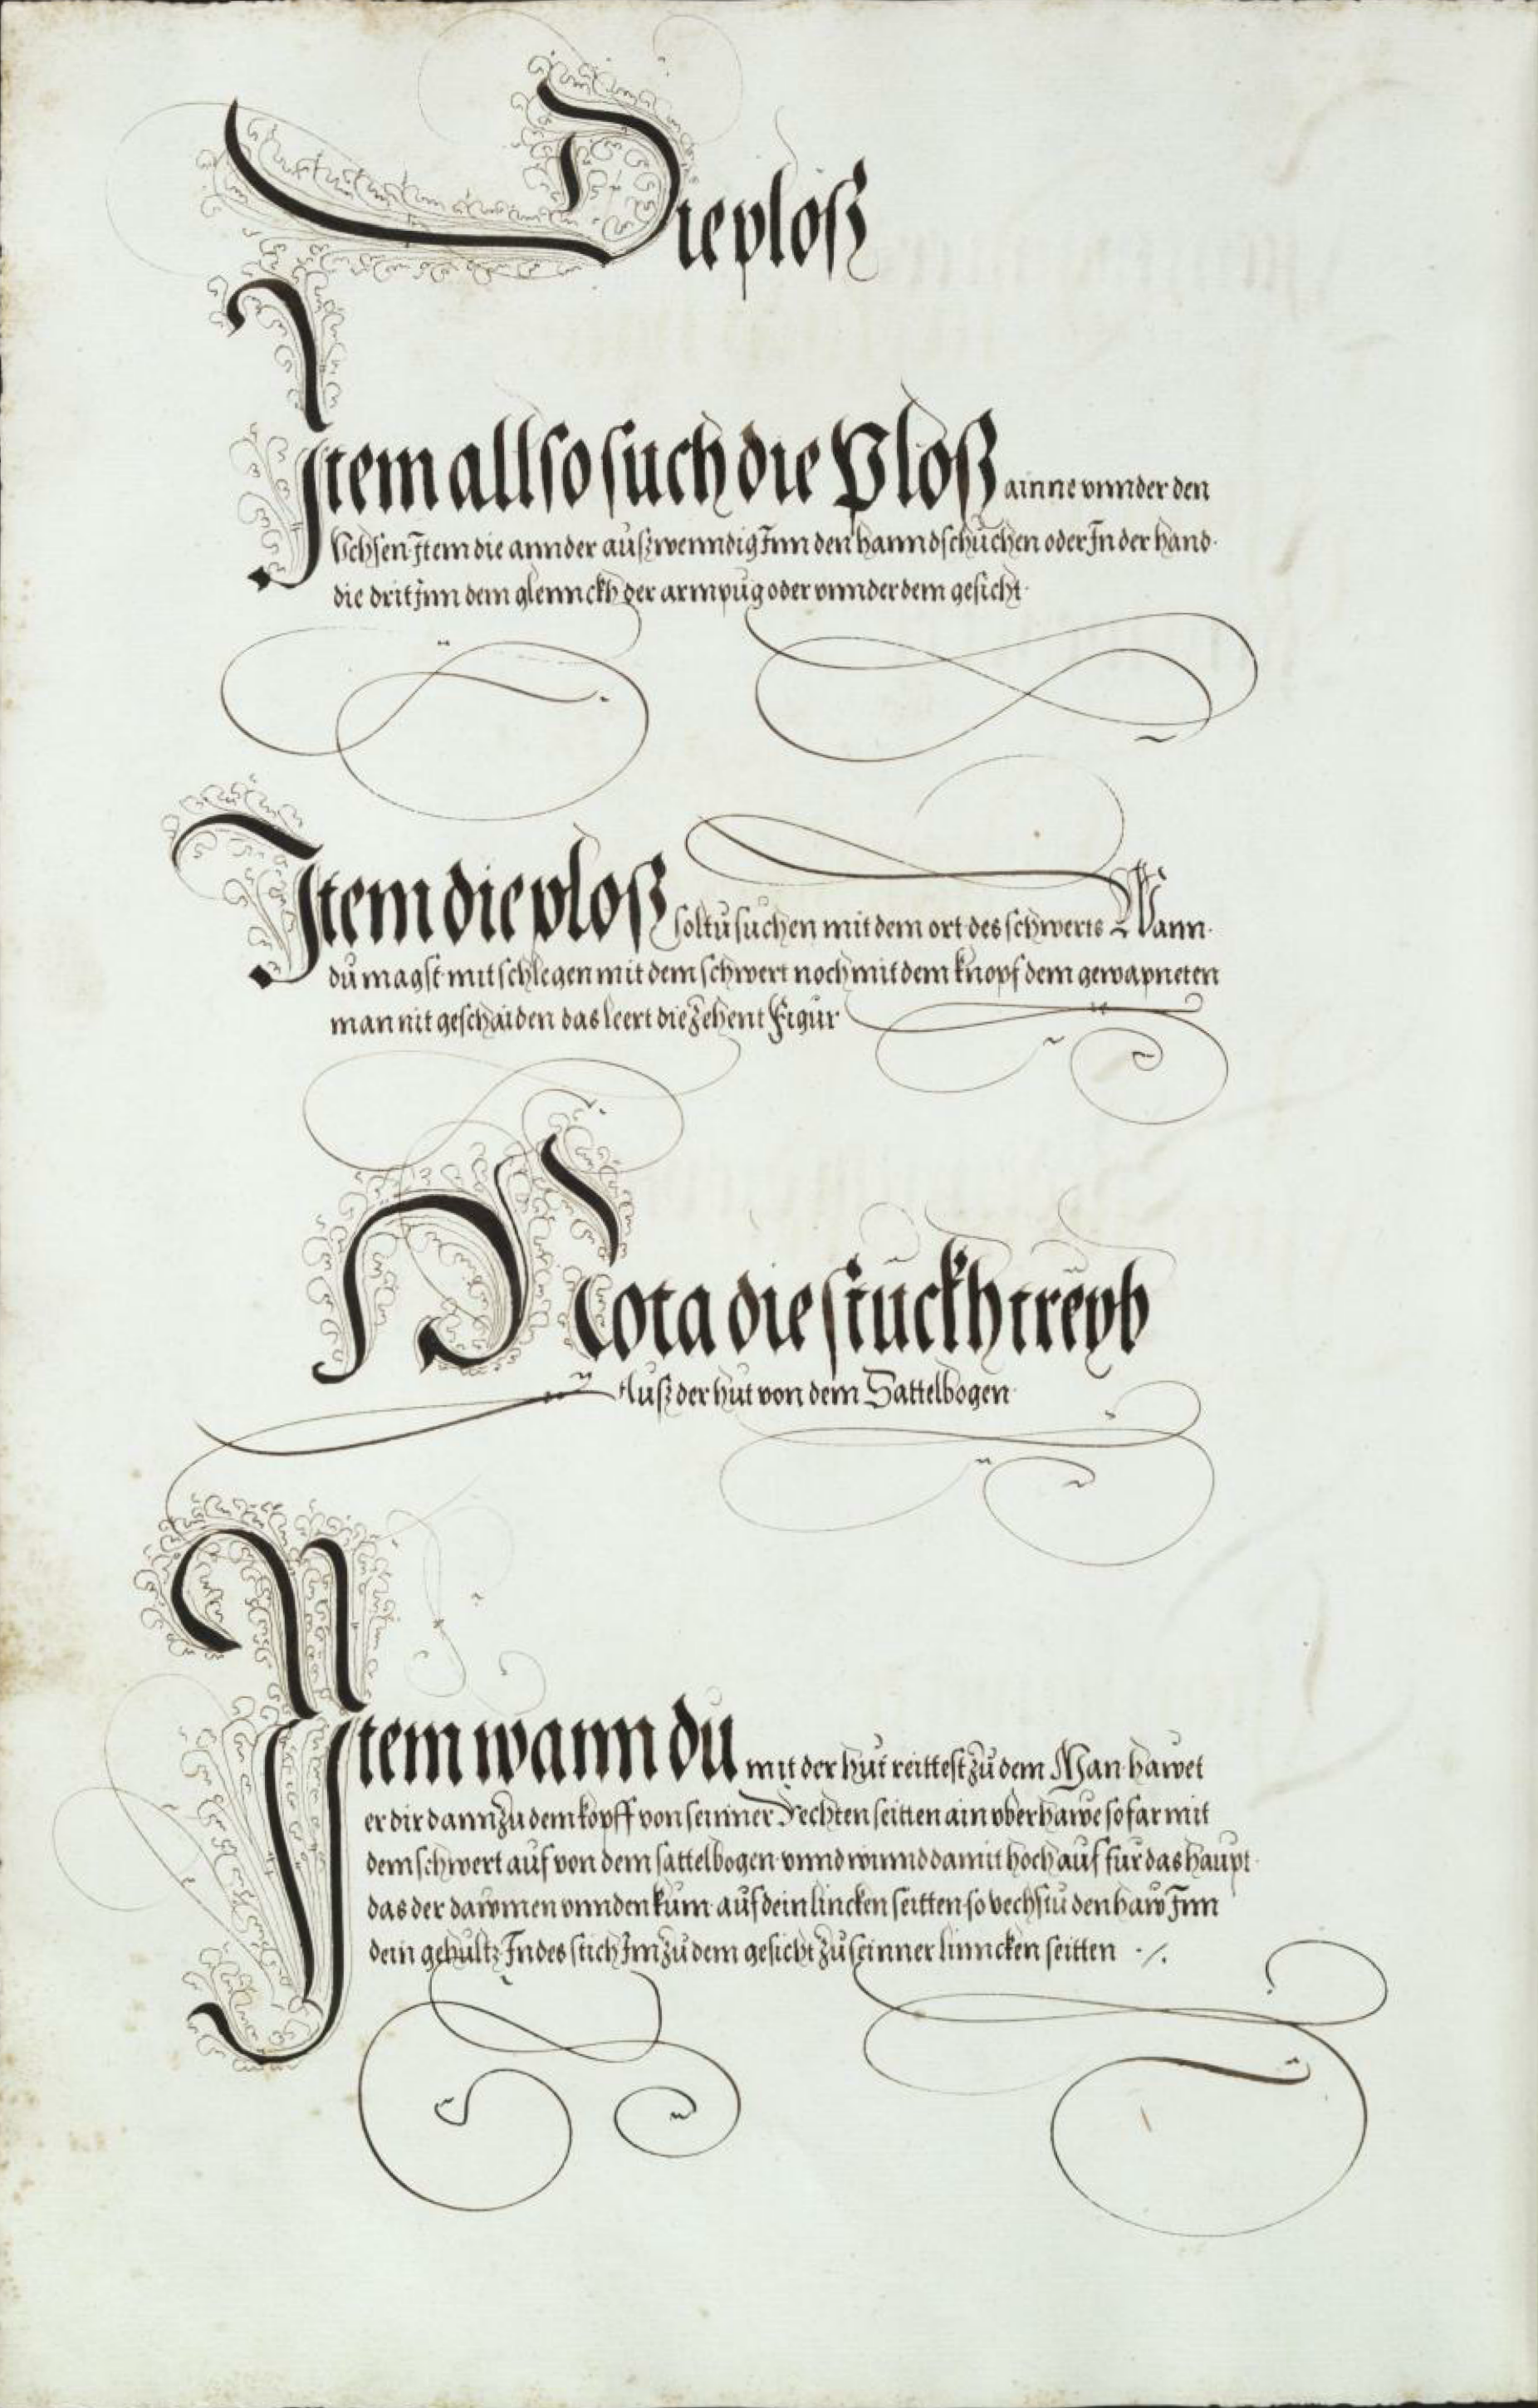 Die ploß
Item allso such die Ploß ainne vnnder den
Vchsen Item die annder außwenndig Inn den hanndschuchen oder In der hand.
die drit Inn dem glennckh der armpug oder vnnder dem gesicht.
Item die ploß soltu suchen mit dem ort des schwerts Wann.
du magst mit schlegen mit dem schwert noch mit dem knopf dem gewapneten
man nit geschaiden das leert die zehent Figur
Nota die stuckh treyb
Auß der hut von dem Sattelbogen.
Item wann du mit der hut reittest zu dem Man hawet
er dir dann zu dem kopff von seinner Rechten seitten ain vberhawe so far mit
dem schwert auf von dem sattelbogen vnnd winnd damit hoch auf fur das haupt.
das der dawmen vnnden kum auf dein lincken seitten so vechstu den haw Inn
dein gehultz Indes stich Im zu dem gesicht zu seinner linncken seitten ./.